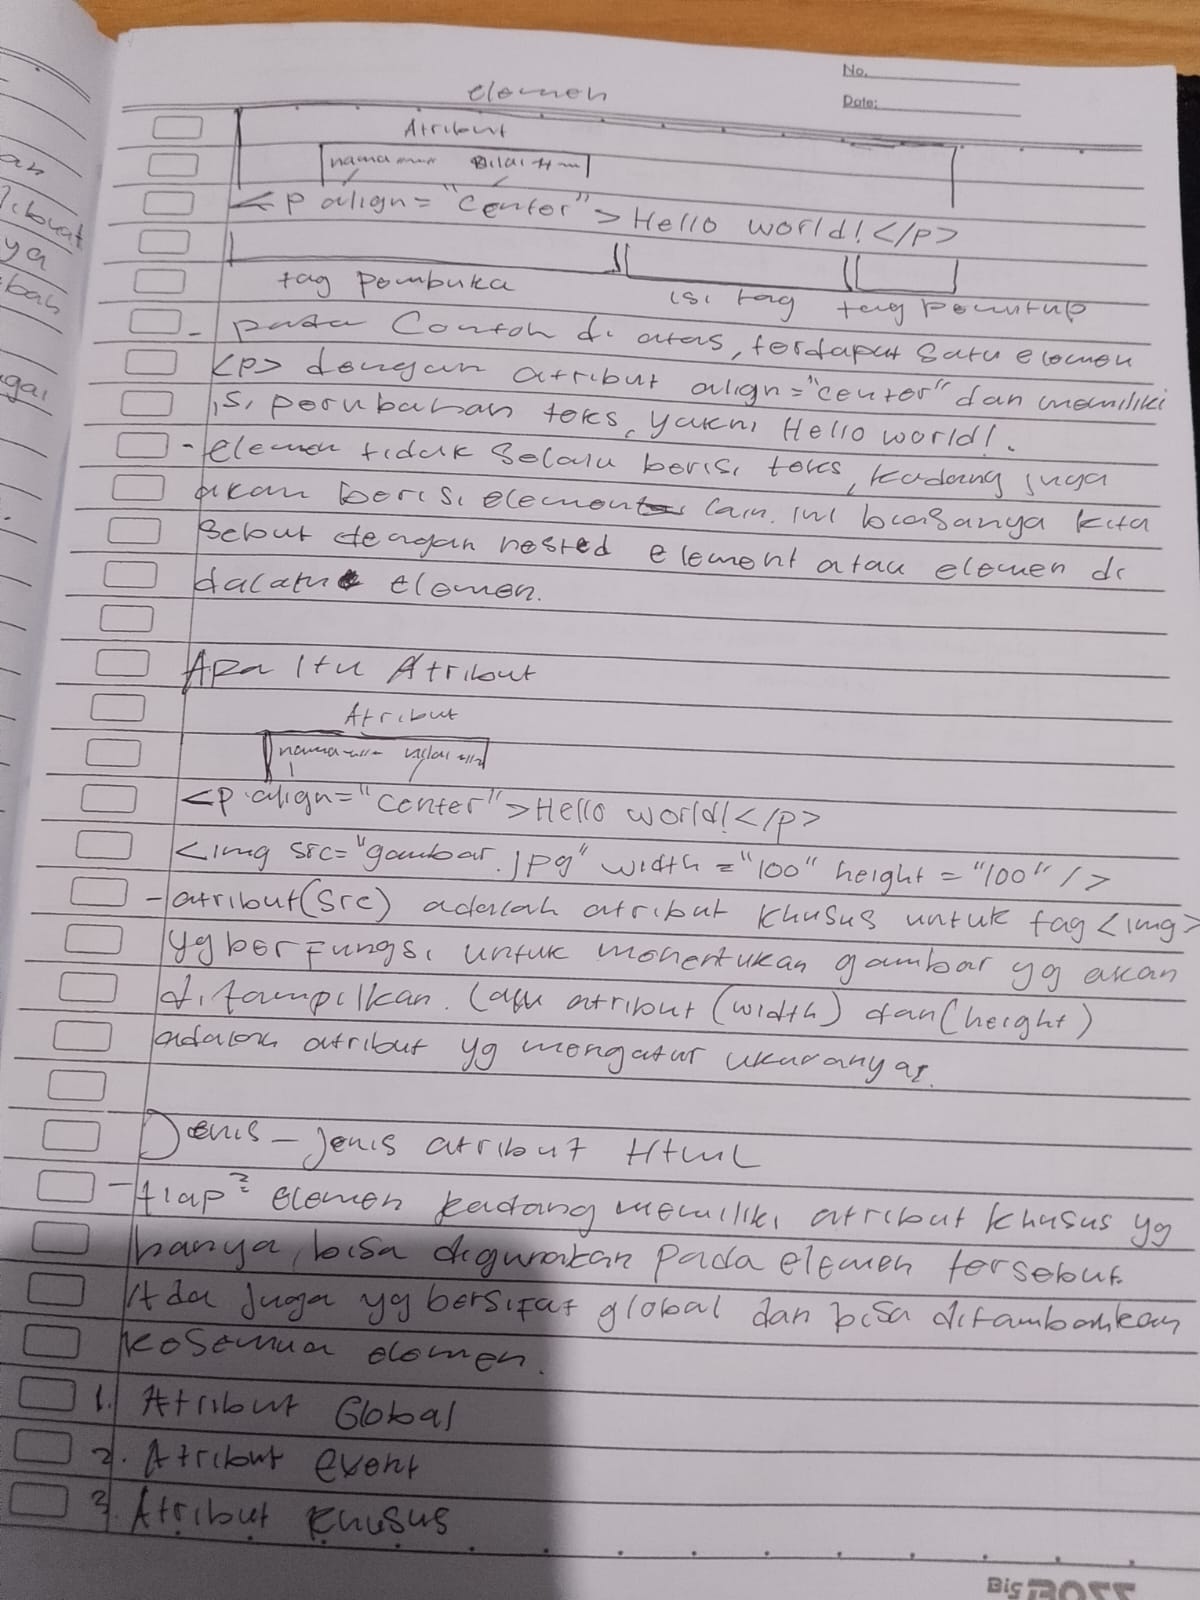 No.
Date:
elemen
Atribut
nama
<p align="center">Hello world!</p>
tag pembuka
isi tag
tag penutup
- pada Contoh di atas, terdapat satu elemen
<p> dengan atribut align="center" dan memiliki
isi perubahan teks, yakni Hello world!.
- elemen tidak selalu berisi teks, kadang juga
akan berisi element lain. ini biasanya kita
sebut dengan nested element atau elemen di
dalam elemen.
Apa Itu Atribut
Atribut
nama nilai
<p align="center">Hello world!</p>
<img src="gambar.jpg" width="100" height="100"/>
- atribut (src) adalah atribut khusus untuk tag <img>
yg berfungsi untuk menentukan gambar yg akan
ditampilkan. Lalu atribut (width) dan (height)
adalah atribut yg mengatur ukuranya.
Jenis - jenis atribut Html
- tiap² elemen kadang memiliki atribut khusus yg
hanya bisa digunakan pada elemen tersebut.
Ada juga yg bersifat global dan bisa ditambahkan
kesemua elemen.
1. Atribut Global
2. Atribut event
3. Atribut Khusus
Big BOSS
an
ya
bah
gai